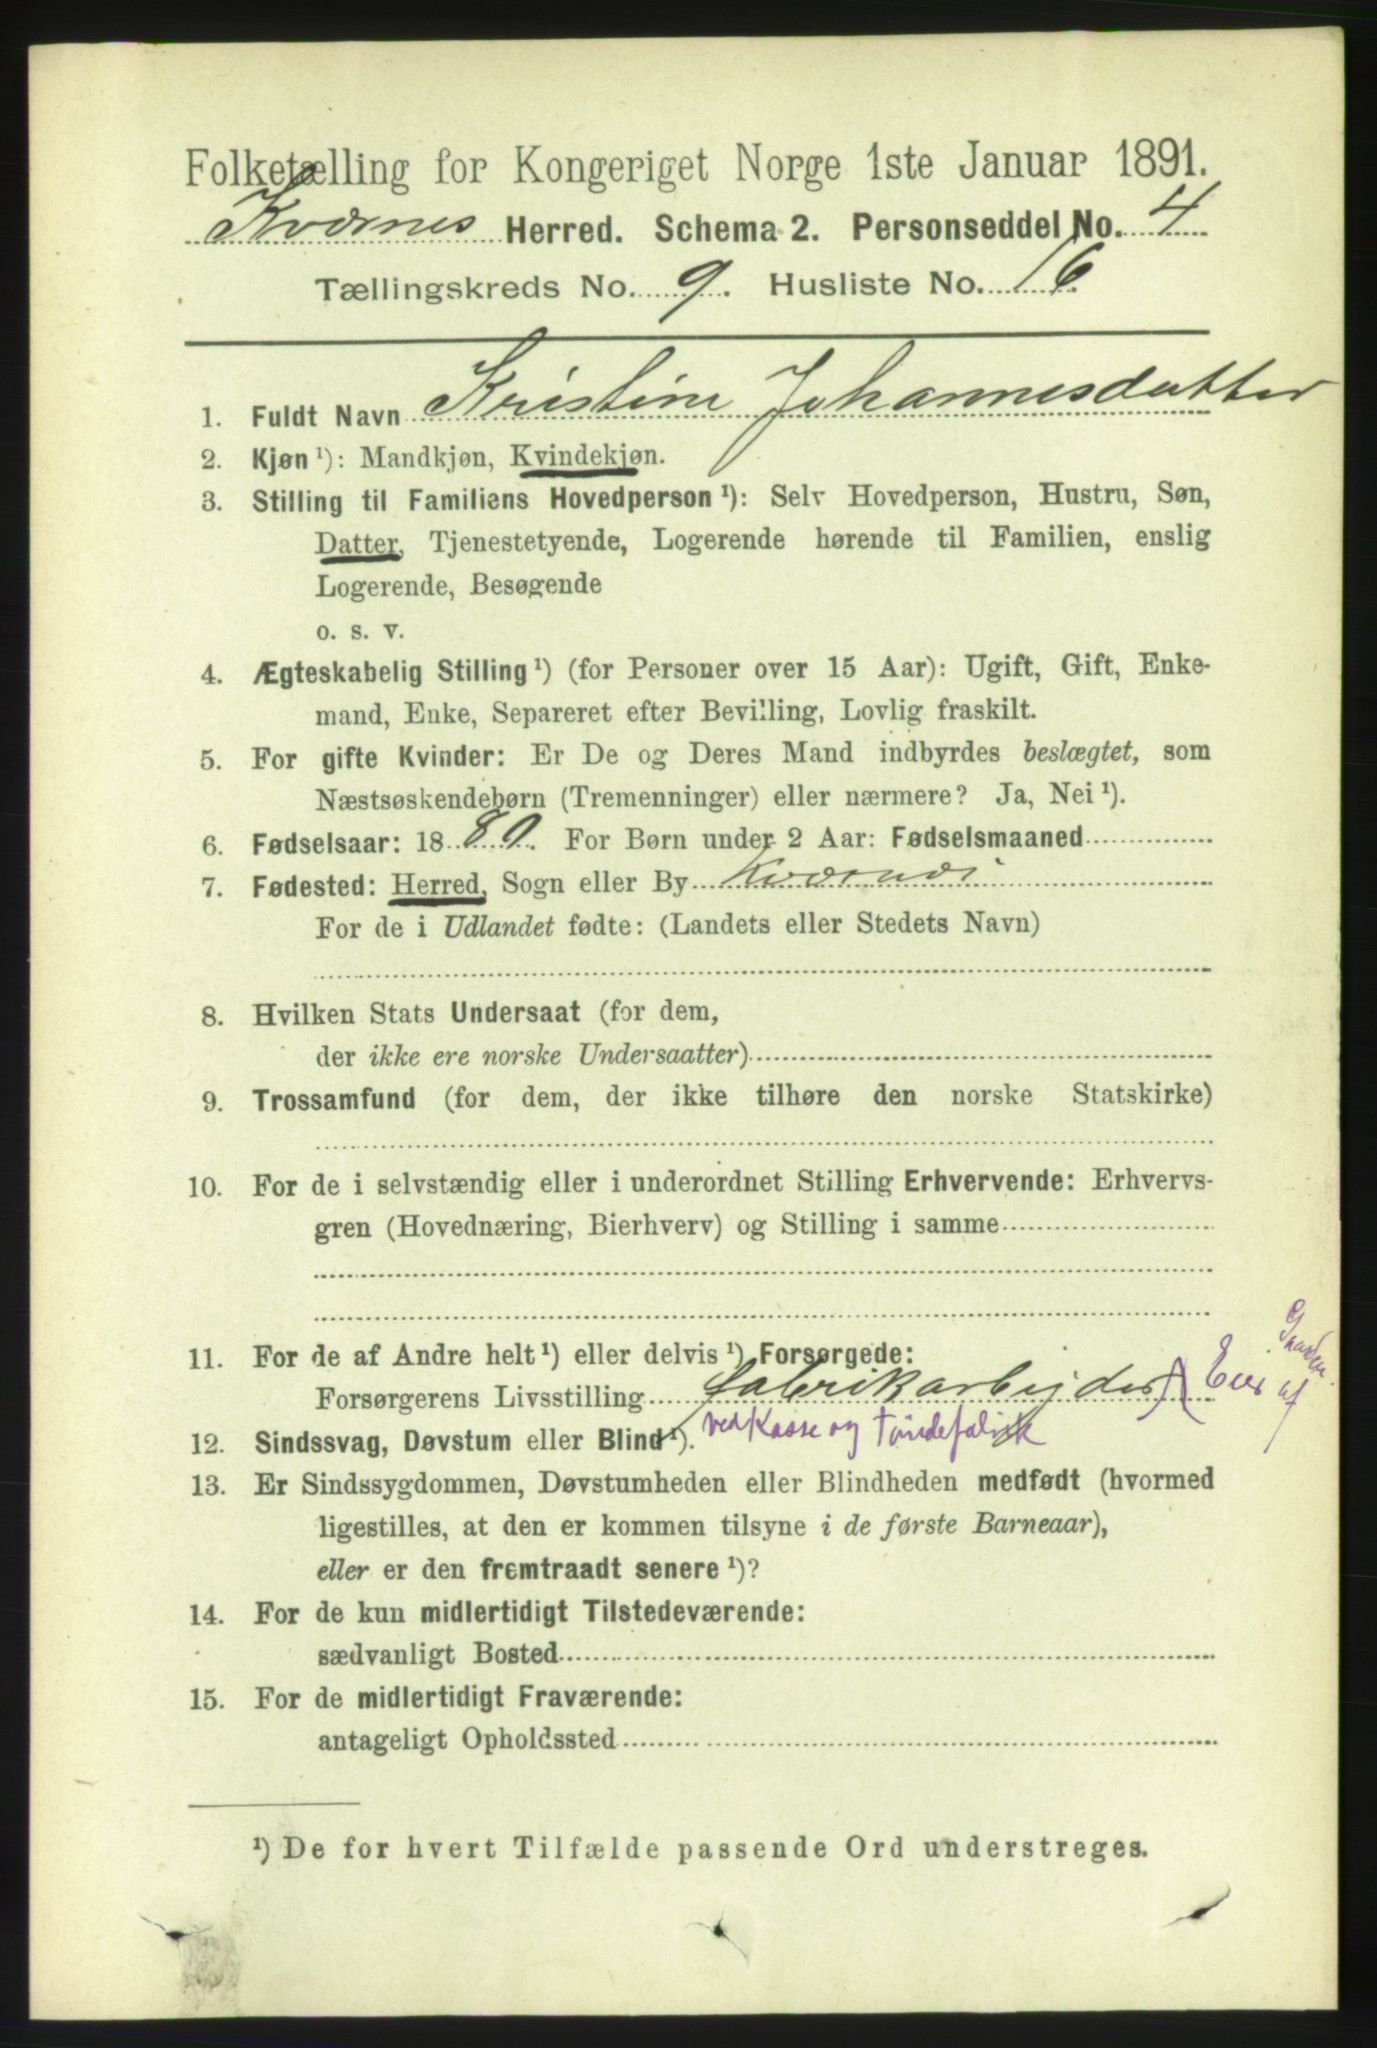 Folketælling for Kongeriget Norge 1ste Januar 1891.
Kværnes Herred. Schema 2. Personseddel No. 4
Tællingskreds No. 9. Husliste No. 16
1. Fuldt Navn Kristine Johannesdatter
2. Kjøn ¹): Mandkjøn, Kvindekjøn.
3. Stilling til Familiens Hovedperson ¹): Selv Hovedperson, Hustru, Søn,
Datter, Tjenestetyende, Logerende hørende til Familien, enslig
Logerende, Besøgende
o. s. v.
4. Ægteskabelig Stilling ¹) (for Personer over 15 Aar): Ugift, Gift, Enke-
mand, Enke, Separeret efter Bevilling, Lovlig fraskilt.
5. For gifte Kvinder: Er De og Deres Mand indbyrdes beslægtet, som
Næstsøskendebørn (Tremenninger) eller nærmere? Ja, Nei ¹).
6. Fødselsaar: 1880. For Børn under 2 Aar: Fødselsmaaned
7. Fødested: Herred, Sogn eller By Kværnes
For de i Udlandet fødte: (Landets eller Stedets Navn)
8. Hvilken Stats Undersaat (for dem,
der ikke ere norske Undersaatter)
9. Trossamfund (for dem, der ikke tilhøre den norske Statskirke)
10. For de i selvstændig eller i underordnet Stilling Erhvervende: Erhvervs-
gren (Hovednæring, Bierhverv) og Stilling i samme
11. For de af Andre helt ¹) eller delvis ¹) Forsørgede:
Forsørgerens Livsstilling fabrikarbejder Eier af Gaarden.
ved Kasse og Tøndefabrik
12. Sindssvag, Døvstum eller Blind ¹).
13. Er Sindssygdommen, Døvstumheden eller Blindheden medfødt (hvormed
ligestilles, at den er kommen tilsyne i de første Barneaar),
eller er den fremtraadt senere ¹)?
14. For de kun midlertidigt Tilstedeværende:
sædvanligt Bosted
15. For de midlertidigt Fraværende:
antageligt Opholdssted
¹) De for hvert Tilfælde passende Ord understreges.